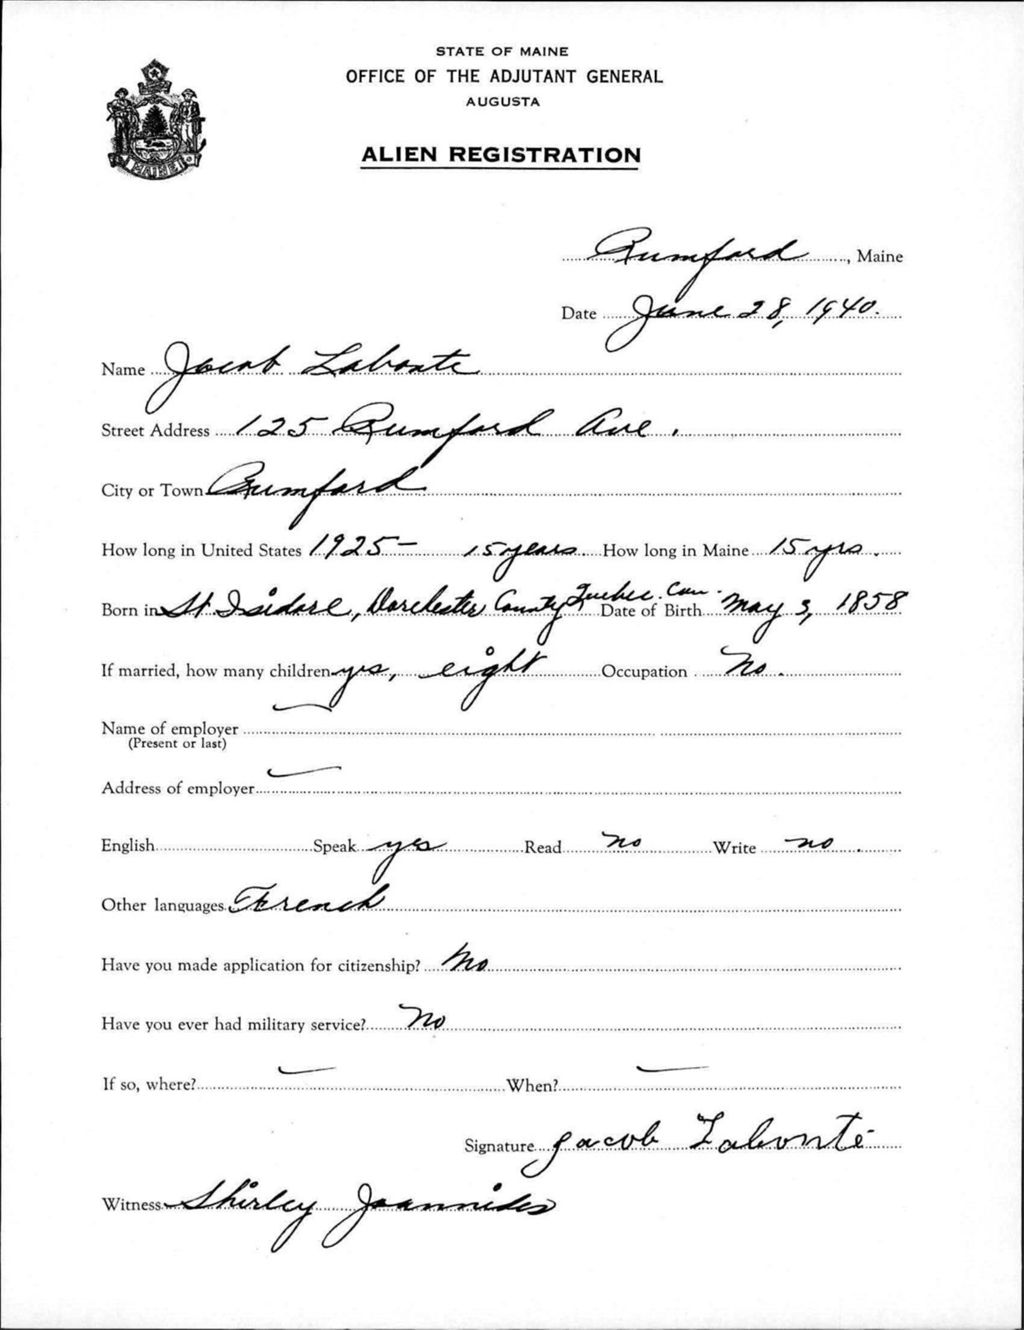 STATE OF MAINE
OFFICE OF THE ADJUTANT GENERAL
AUGUSTA
ALIEN REGISTRATION
MAINE
Rumford, Maine
Date June 28, 1940.
Name Jacob Labonte
Street Address 125 Rumford Ave.
City or Town Rumford
How long in United States 1925- 15 years. How long in Maine 15 yrs.
Born in St Isidore, Dorchester County Quebec. Can. Date of Birth May 3, 1858
If married, how many children yes, eight Occupation No.
Name of employer
(Present or last)
Address of employer
English Speak yes Read no Write no.
Other languages French
Have you made application for citizenship? No
Have you ever had military service? No
If so, where? When?
Signature Jacob Labonté
Witness Shirley Joannides